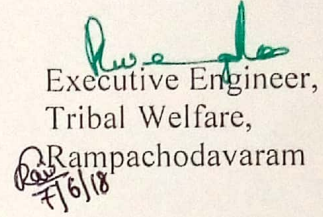 Executive Engineer,
Tribal Welfare,
Rampachodavaram
7/6/18